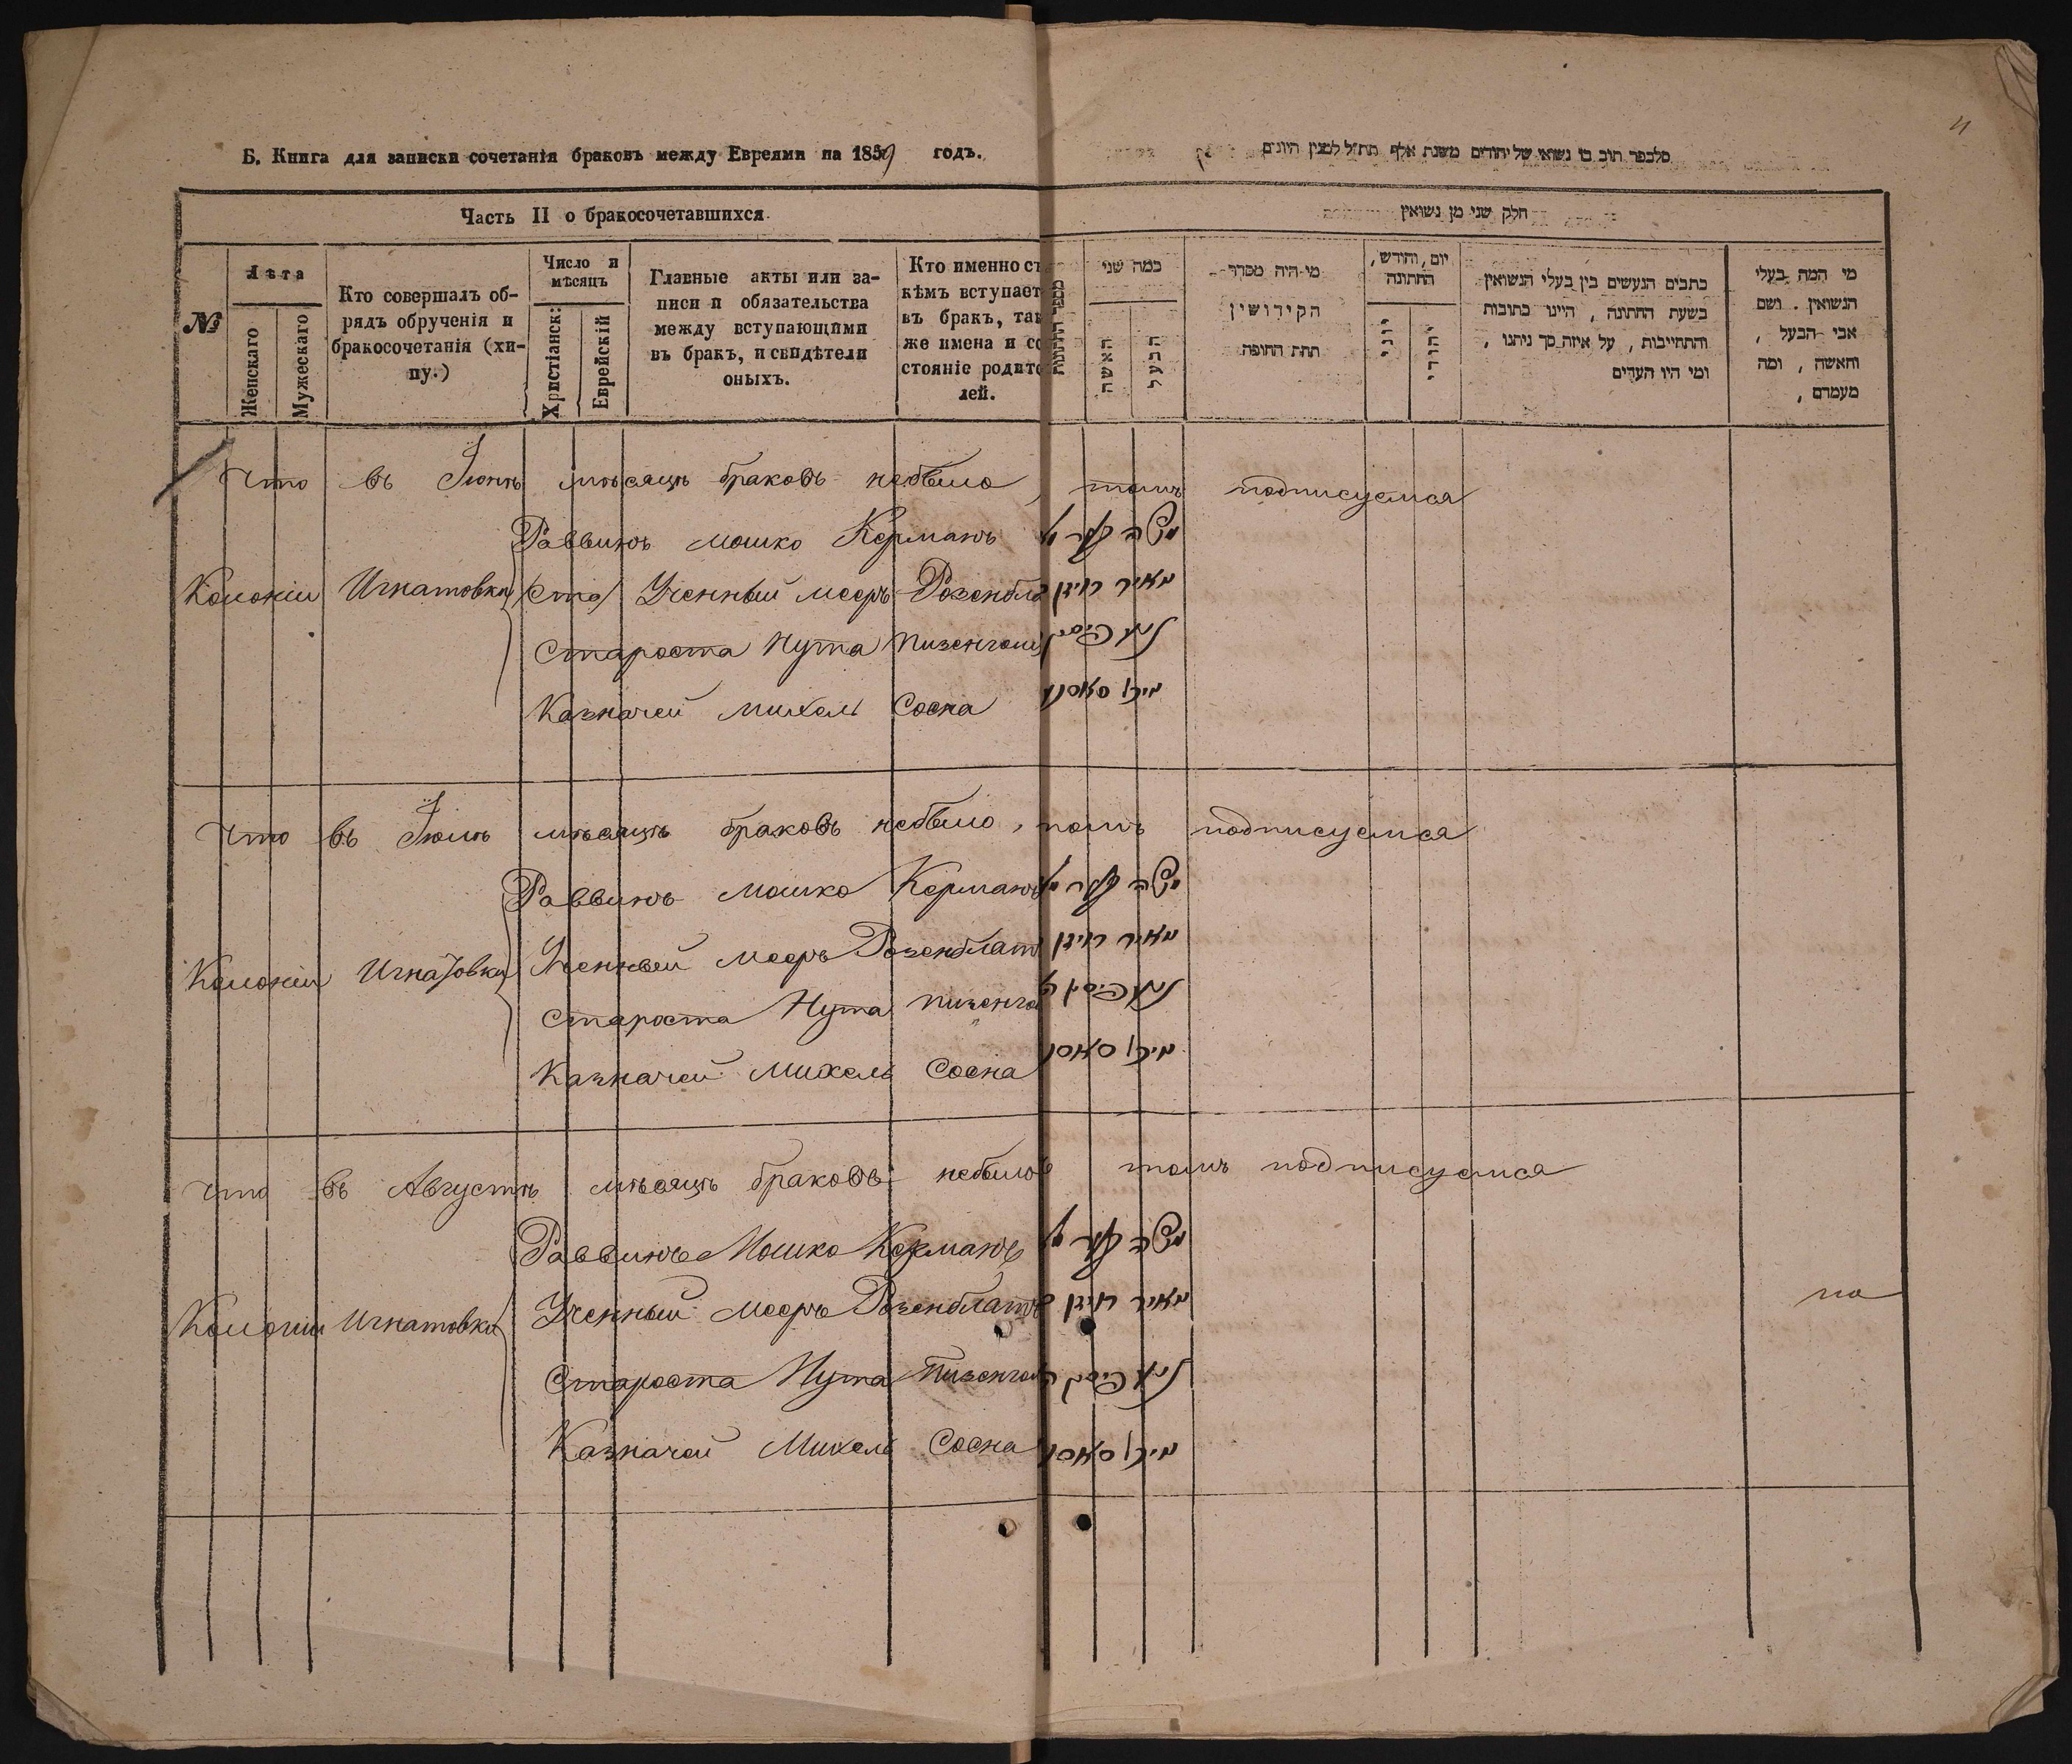 Б. Книга для записки сочетанія браковъ между Евреями на 1859 годъ.
Часть II о бракосочетавшихся.
№
Лѣта
Женскаго
Мужескаго
Кто совершалъ об-
рядъ обрученія и
бракосочетанія (хи-
пу.)
Число и
мѣсяцъ
Христіанск:
Еврейскій
Главные акты или за-
писи и обязательства
между вступающими
въ бракъ, и свидѣтели
оныхъ.
Кто именно съ
кѣмъ вступает
въ бракъ, так
же имена и со
стояніе родите
лей.
חלק שני מן נשואין
כמה שני
האשה
הבעל
מי היה מסדר
הקידושין
תחת החופה
יום, וחודש,
החתונה
יווני
יהודי
כתבים הנעשים בין בעלי הנשואין
בשעת החתונה, היינו כתובות
והתחייבות, על איזה סך ניתנו,
ומי היו העדים
מי המה בעלי
הנשואין. ושם
אבי הבעל,
והאשה, ומה
מעמדם,
Что въ Іюнѣ мѣсяцѣ браковъ небыло, томъ подписуемся
Раввинъ Мошко Керманъ
Колоніи Игнатовки Ученный Мееръ Розенбла מאיר רויזן
Староста Нута Пизенгол
Казначей Михель Сосна
Что въ Іюлѣ мѣсяцѣ браковъ небыло, томъ подписуемся
Раввинъ Мошко Керманъ
Колоніи Игнатовки Ученный Мееръ Розенблат מאיר רויזן
Староста Нута Пизенгол
Казначей Михель Сосна
Что въ Августѣ мѣсяцѣ браковъ небыло томъ подписуемся
Раввинъ Мошко Керманъ
Колоніи Игнатовки Ученный Мееръ Розенблатъ מאיר רויזן
по
Староста Нута Пизенгол
Казначей Михель Сосна